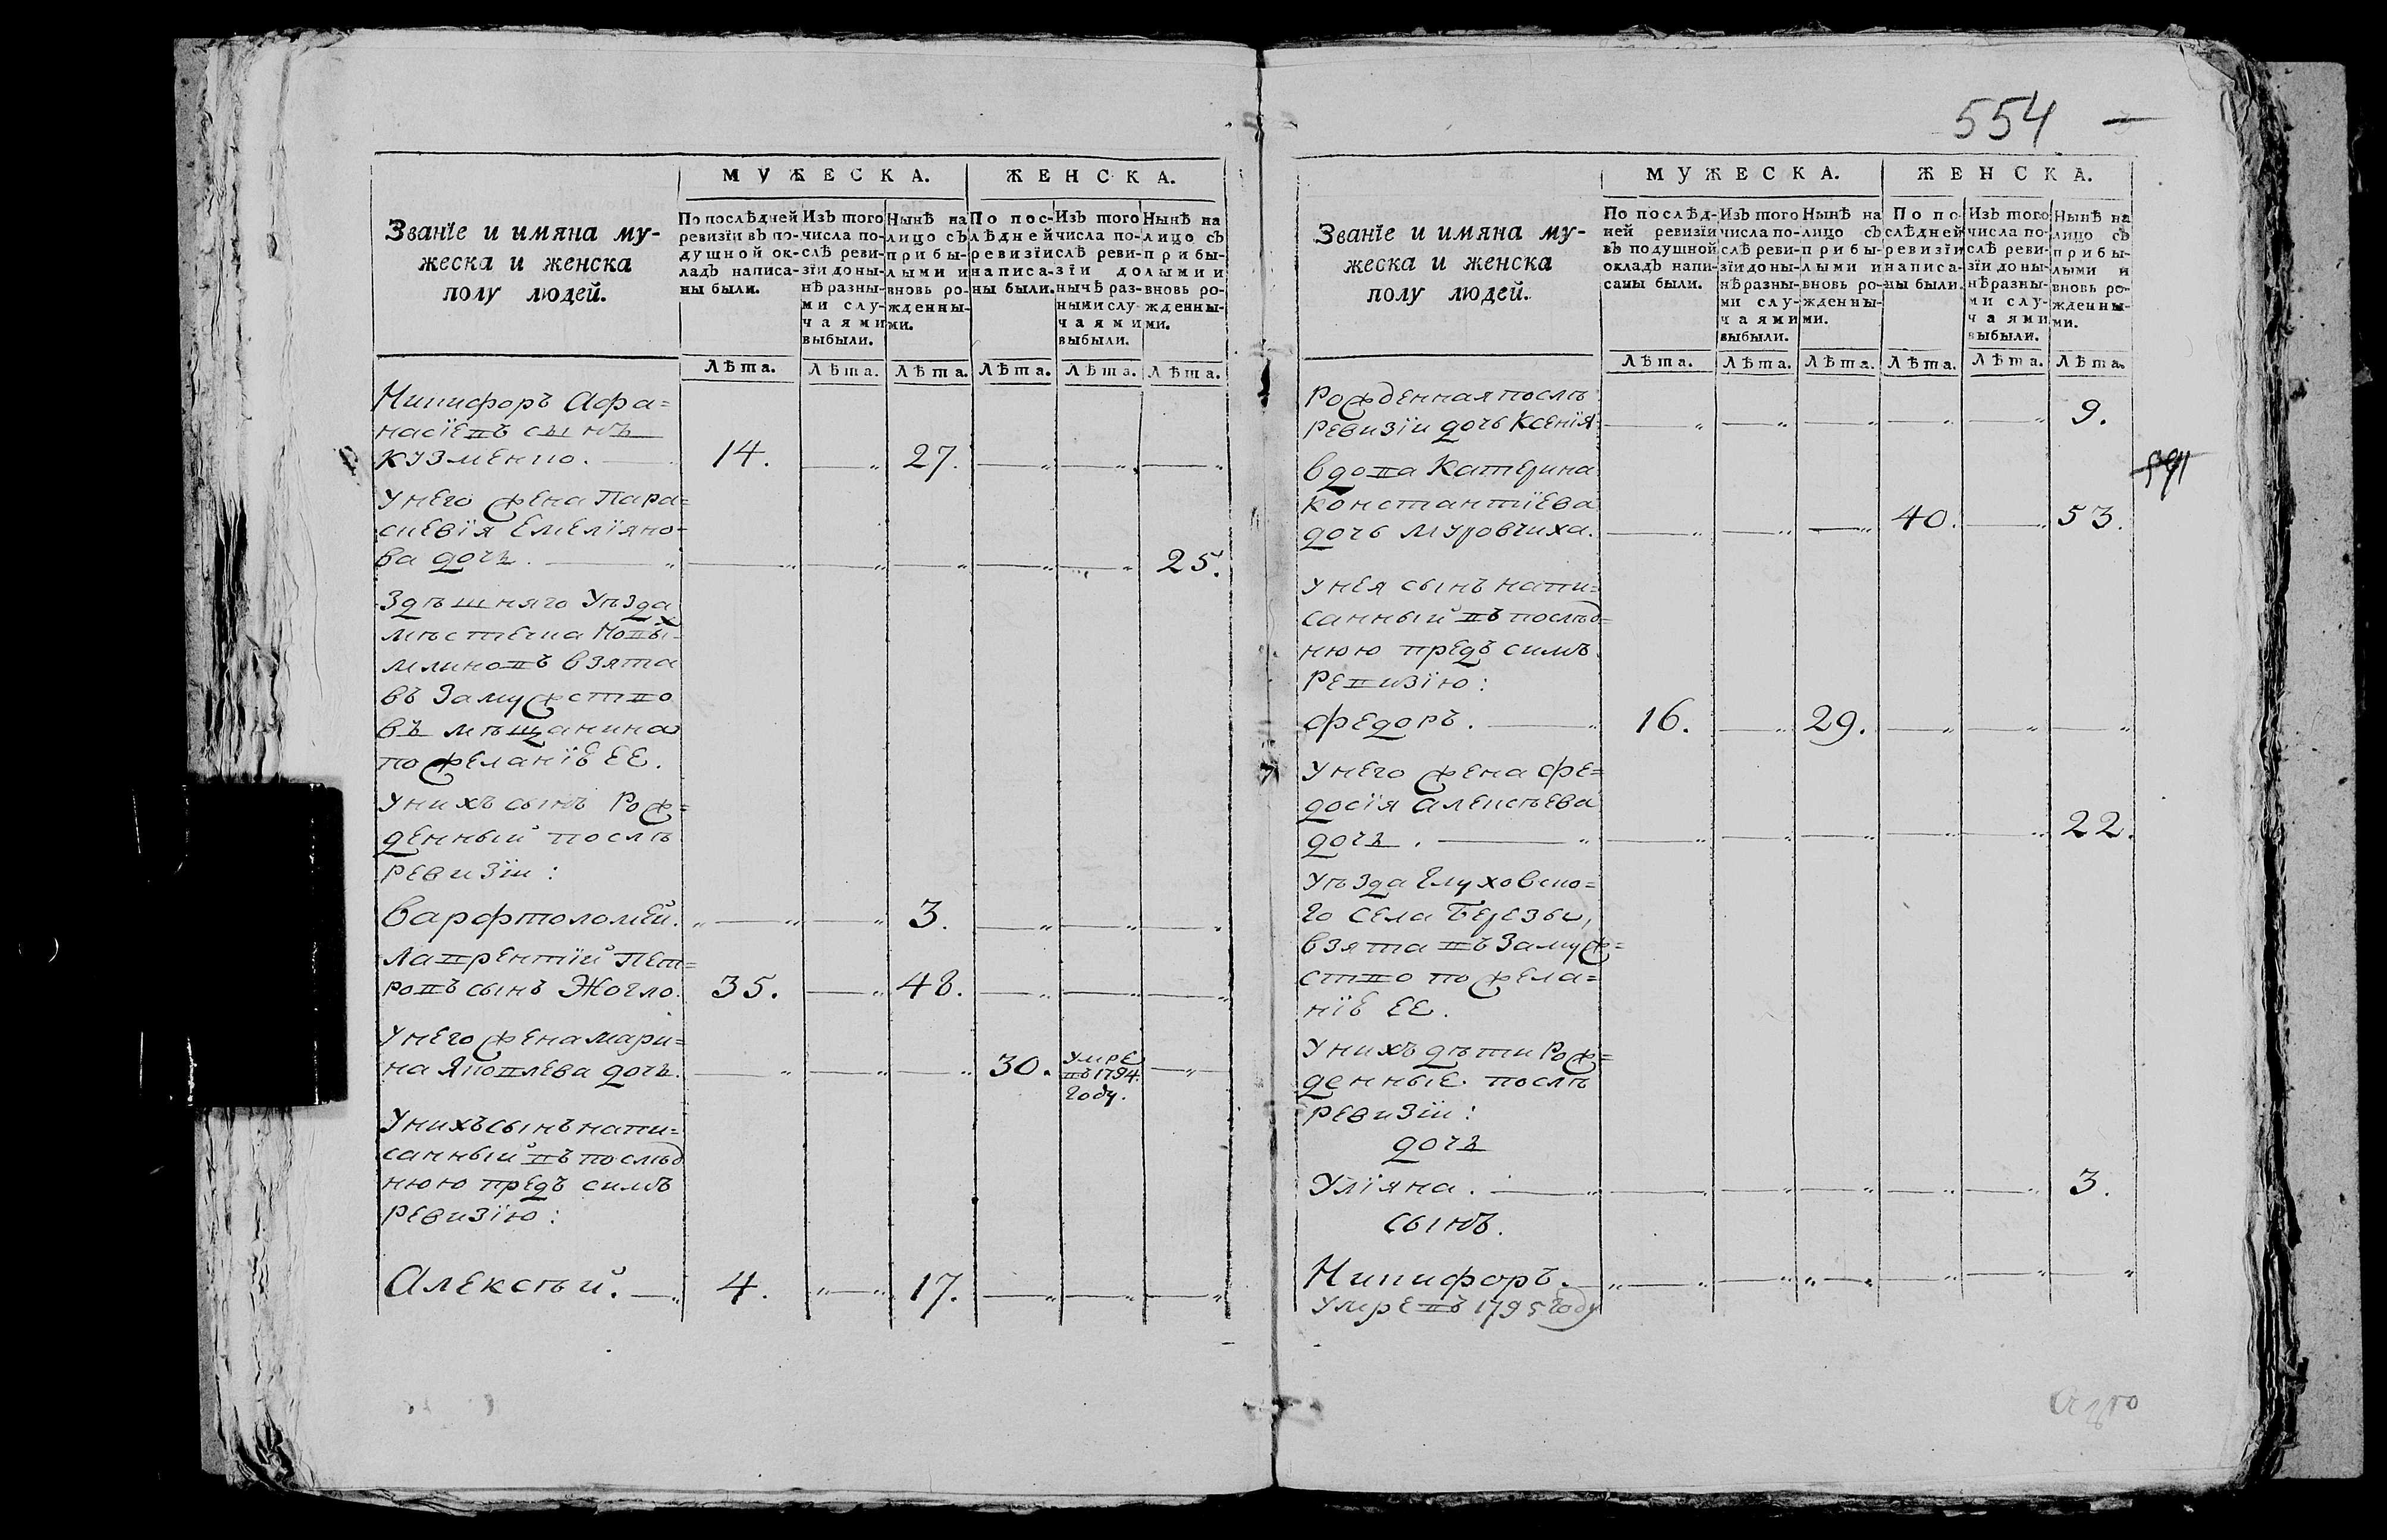 Званїе и имяна му-
жеска и женска
полу людей.
МУЖЕСКА.
ЖЕНСКА.
По послѣдней
ревизїи въ по-
душной ок-
ладъ написа-
ны были.
Изъ того
числа по-
слѣ реви-
зїи до ны-
нѣ разны-
ми слу-
чаями
выбыли.
Нынѣ на
лицо съ
прибы-
лыми и
вновь ро-
жденны-
ми.
По пос-
лѣдней
ревизїи
написа-
ны были.
Изъ того
числа по-
слѣ реви-
зїи до
нычѣ раз-
ными слу-
чаями
выбыли.
Нынѣ на
лицо съ
прибы-
лыми и
вновь ро-
жденны-
ми.
Лѣта. Лѣта. Лѣта. Лѣта. Лѣта. Лѣта.
Никифоръ Афа=
насіевъ сынъ
Кузменко. 14. 27.
У него жена Пара=
скевїя Емелїяно-
ва дочь. 25.
Здѣшняго уѣзда
мѣстечка Новы-
млиновъ взята
въ замужство
въ мѣщанина
по желанїе ее.
У нихъ сынъ рож=
денный послѣ
ревизїи:
Варфтоломей. 3.
Лаврентїй Пет=
ровъ сынъ Жогло. 35. 48.
У него жена Мари=
на Яковлева дочь. 30. умре
въ 1794.
году.
У нихъ сынъ напи=
санный въ послѣд
нюю предъ симъ
ревизїю:
Алексѣй. 4. 17.
554
Званїе и имяна му-
жеска и женска
полу людей.
МУЖЕСКА.
ЖЕНСКА.
По послѣд-
ней ревизїи
въ подушной
окладъ напи-
саны были.
Изъ того
числа по-
слѣ реви-
зїи до ны-
нѣ разны-
ми слу-
чаями
выбыли.
Нынѣ на
лицо съ
прибы-
лыми и
вновь ро-
жденны-
ми.
По по
слѣдней
ревизїи
написа-
ны были.
Изъ того
числа по-
слѣ реви-
зїи до ны-
нѣ разны-
ми слу-
чаями
выбыли.
Нынѣ на
лицо съ
прибы-
лыми и
вновь ро-
жденны-
ми.
Лѣта. Лѣта. Лѣта. Лѣта. Лѣта. Лѣта.
Рожденная послѣ
ревизїи дочь Ксенїя 9.
Вдова Катерина
Константїева
дочь Муровчиха. 40. 53.
У нея сынъ напи=
санный въ послѣд=
нюю предъ симъ
ревизїю:
Федоръ. 16. 29.
У него жена Фе=
досїя Алексѣева
дочь. 22.
Уѣзда Глуховско=
го села Березы,
взята въ замуж=
ство по жела=
нїе ее.
У нихъ дѣти рож=
денные послѣ
ревизїи:
дочь
Улїяна. 3.
сынъ.
Никифоръ.
умре въ 1795 году